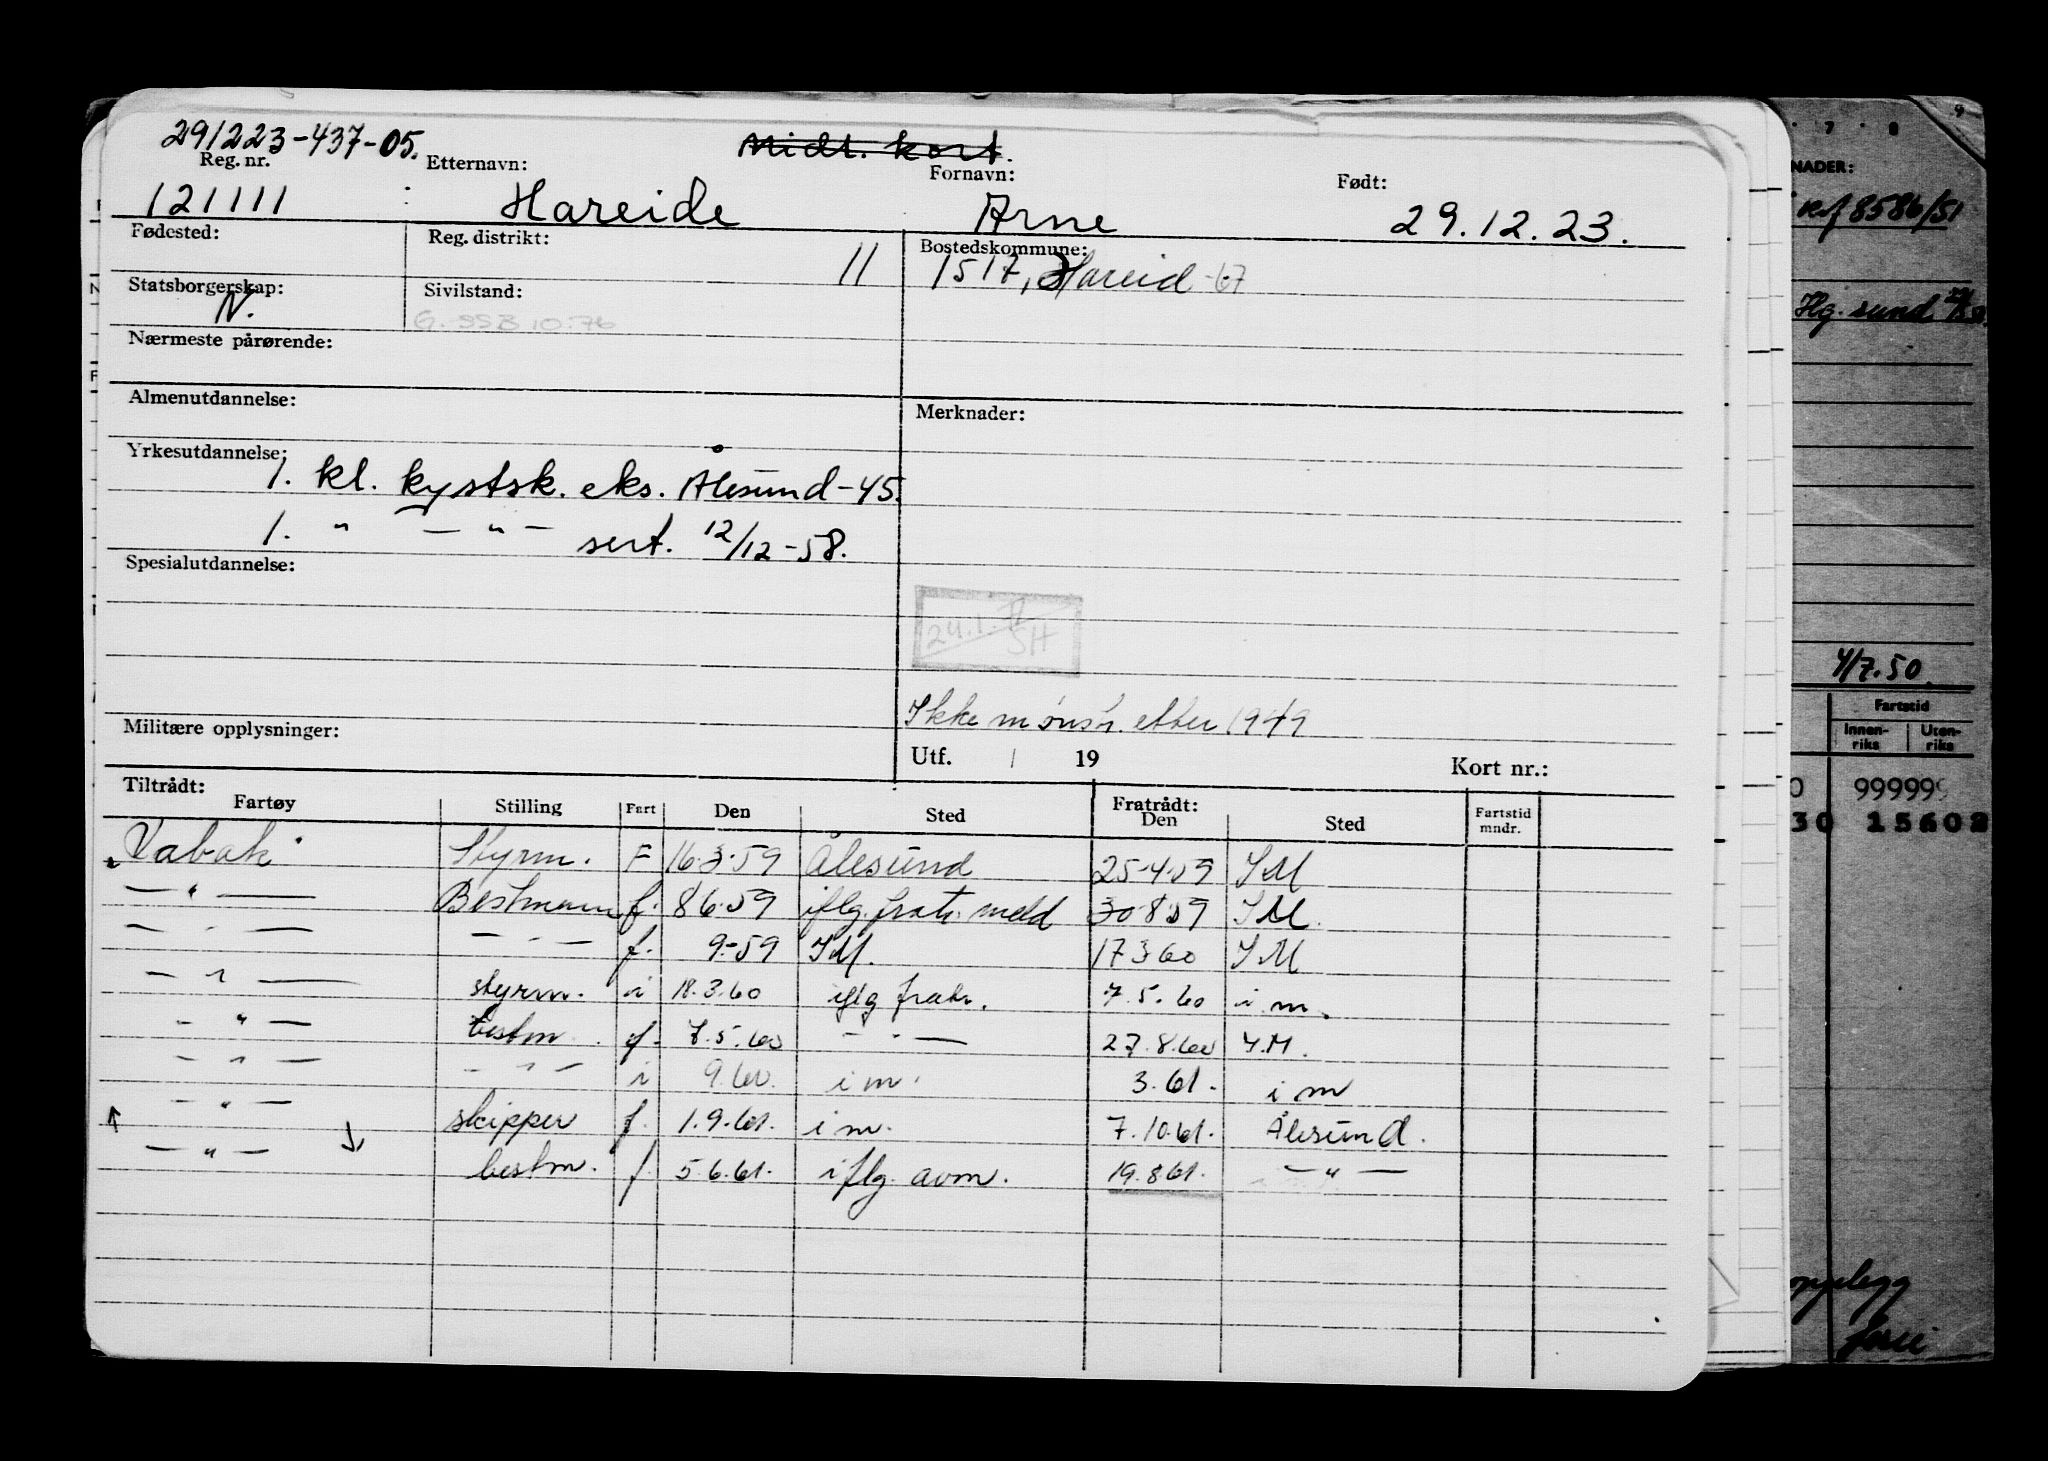 291223-437-05.
Midt. kort.
Reg. nr. Etternavn: Fornavn: Født:
121111 Hareide Arne 29.12.23.
Fødested: Reg. distrikt: 11 Bostedskommune:
1517, Hareid -67
Statsborgerskap: N. Sivilstand:
G. SSB 10.76
Nærmeste pårørende:
Almenutdannelse: Merknader:
Yrkesutdannelse:
1. kl. kystsk. eks. Ålesund -45.
1. " — " — sert. 12/12 -58.
Spesialutdannelse:
24.1. SH
Ikke mønstr. etter 1949
Militære opplysninger: Utf. / 19 Kort nr.:
Tiltrådt: Fratrådt:
Fartøy Stilling Fart Den Sted Den Sted Fartstid mndr.
"Vabak" Styrm. F 16.3.59 Ålesund 25.4.59 I M
— " — Bestmann f. 8 6.59 iflg. fratr. meld 30 8 59 I M.
— " — — " — f. 9.-59 I M. 17 3 60 I M
— " — styrm. i 18.3.60 iflg fratr. 7.5.60 i m.
— " — bestm. f. 7.5.60 — " — 27.8.60 I.M.
— " — — " — i 9.60. i m. 3.61. i m
— " — skipper f. 1.9.61. i m. 7.10.61. Ålesund.
— " — bestm. f. 5.6.61. iflg. avm. 19.8 61. — " —
NADER:
7 8 9
ref 8586/51
Hg. sund
4/7.50
Fartstid
Innen-riks Uten-riks
0 999999
30 15602
opplegg